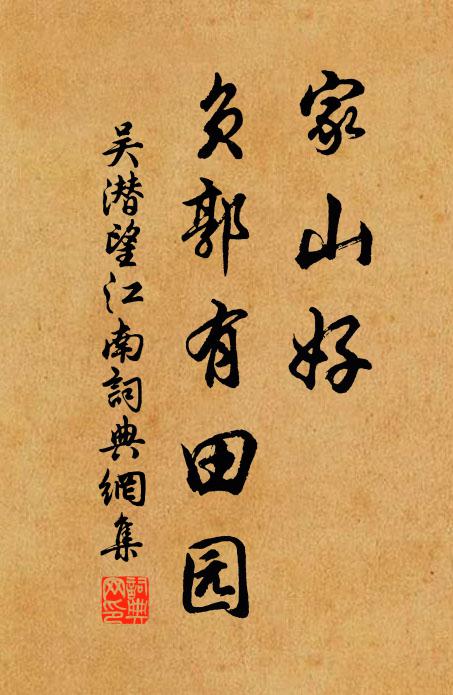 家山好
负郭有田园
吴潜望江南詞典網集
詞典网印